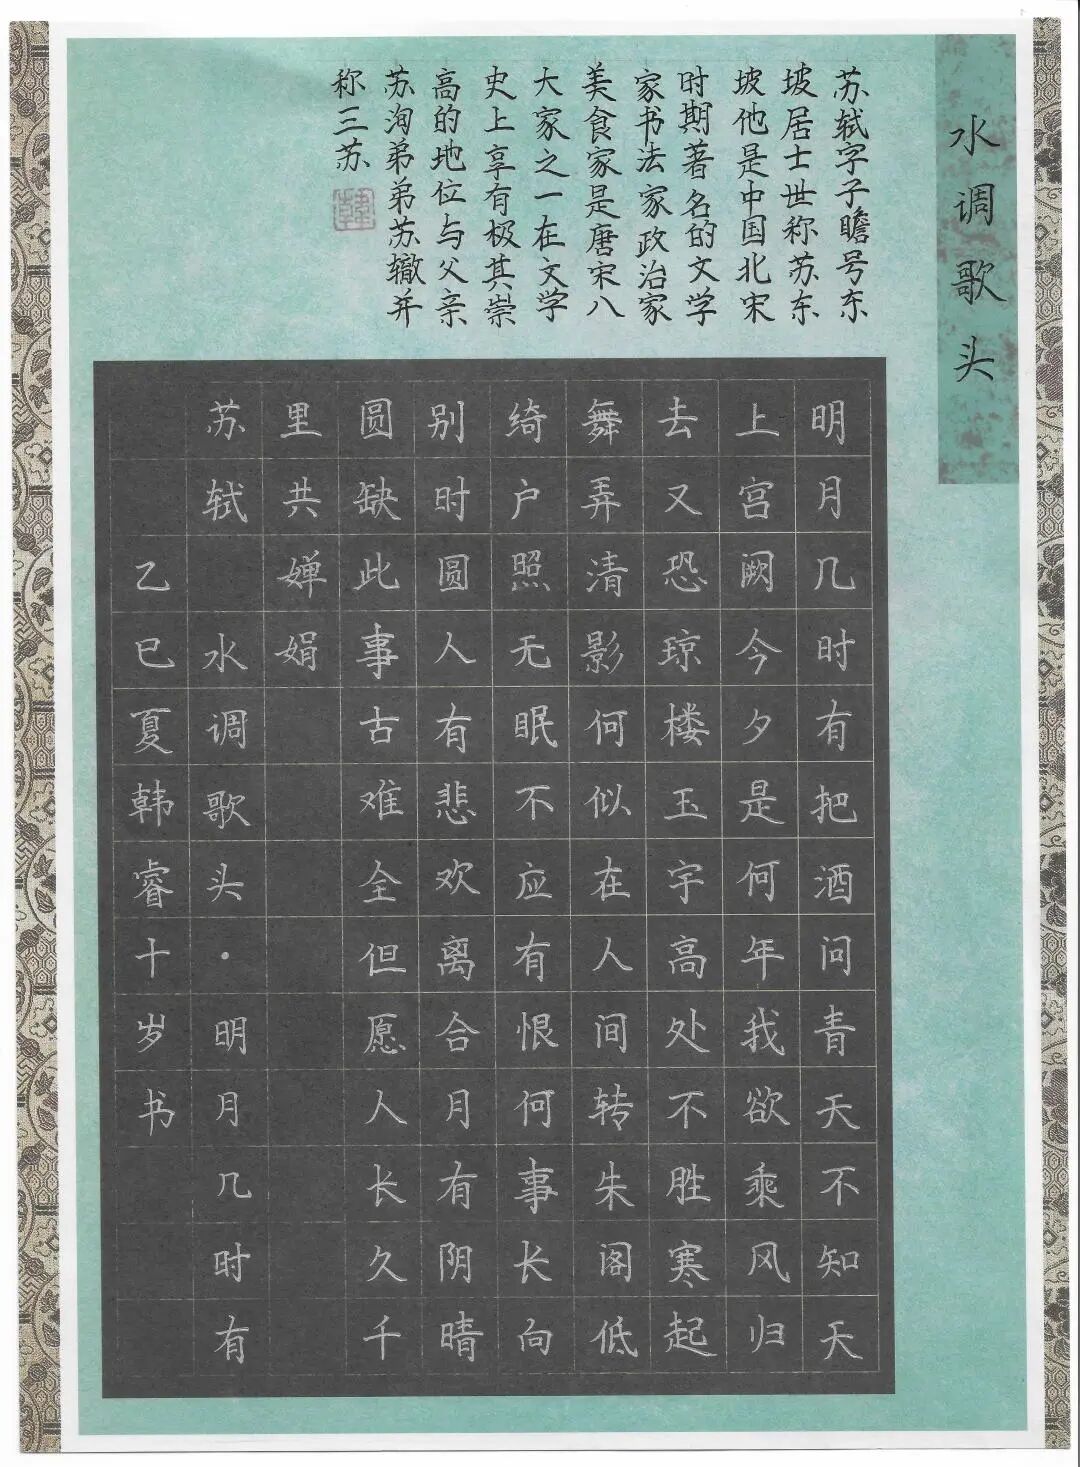 水调歌头
苏轼字子瞻号东
坡居士世称苏东
坡他是中国北宋
时期著名的文学
家书法家政治家
美食家是唐宋八
大家之一在文学
史上享有极其崇
高的地位与父亲
苏洵弟弟苏辙并
称三苏
明月几时有把酒问青天不知天
上宫阙今夕是何年我欲乘风归
去又恐琼楼玉宇高处不胜寒起
舞弄清影何似在人间转朱阁低
绮户照无眠不应有恨何事长向
别时圆人有悲欢离合月有阴晴
圆缺此事古难全但愿人长久千
里共婵娟
苏轼 水调歌头·明月几时有
乙巳夏韩睿十岁书